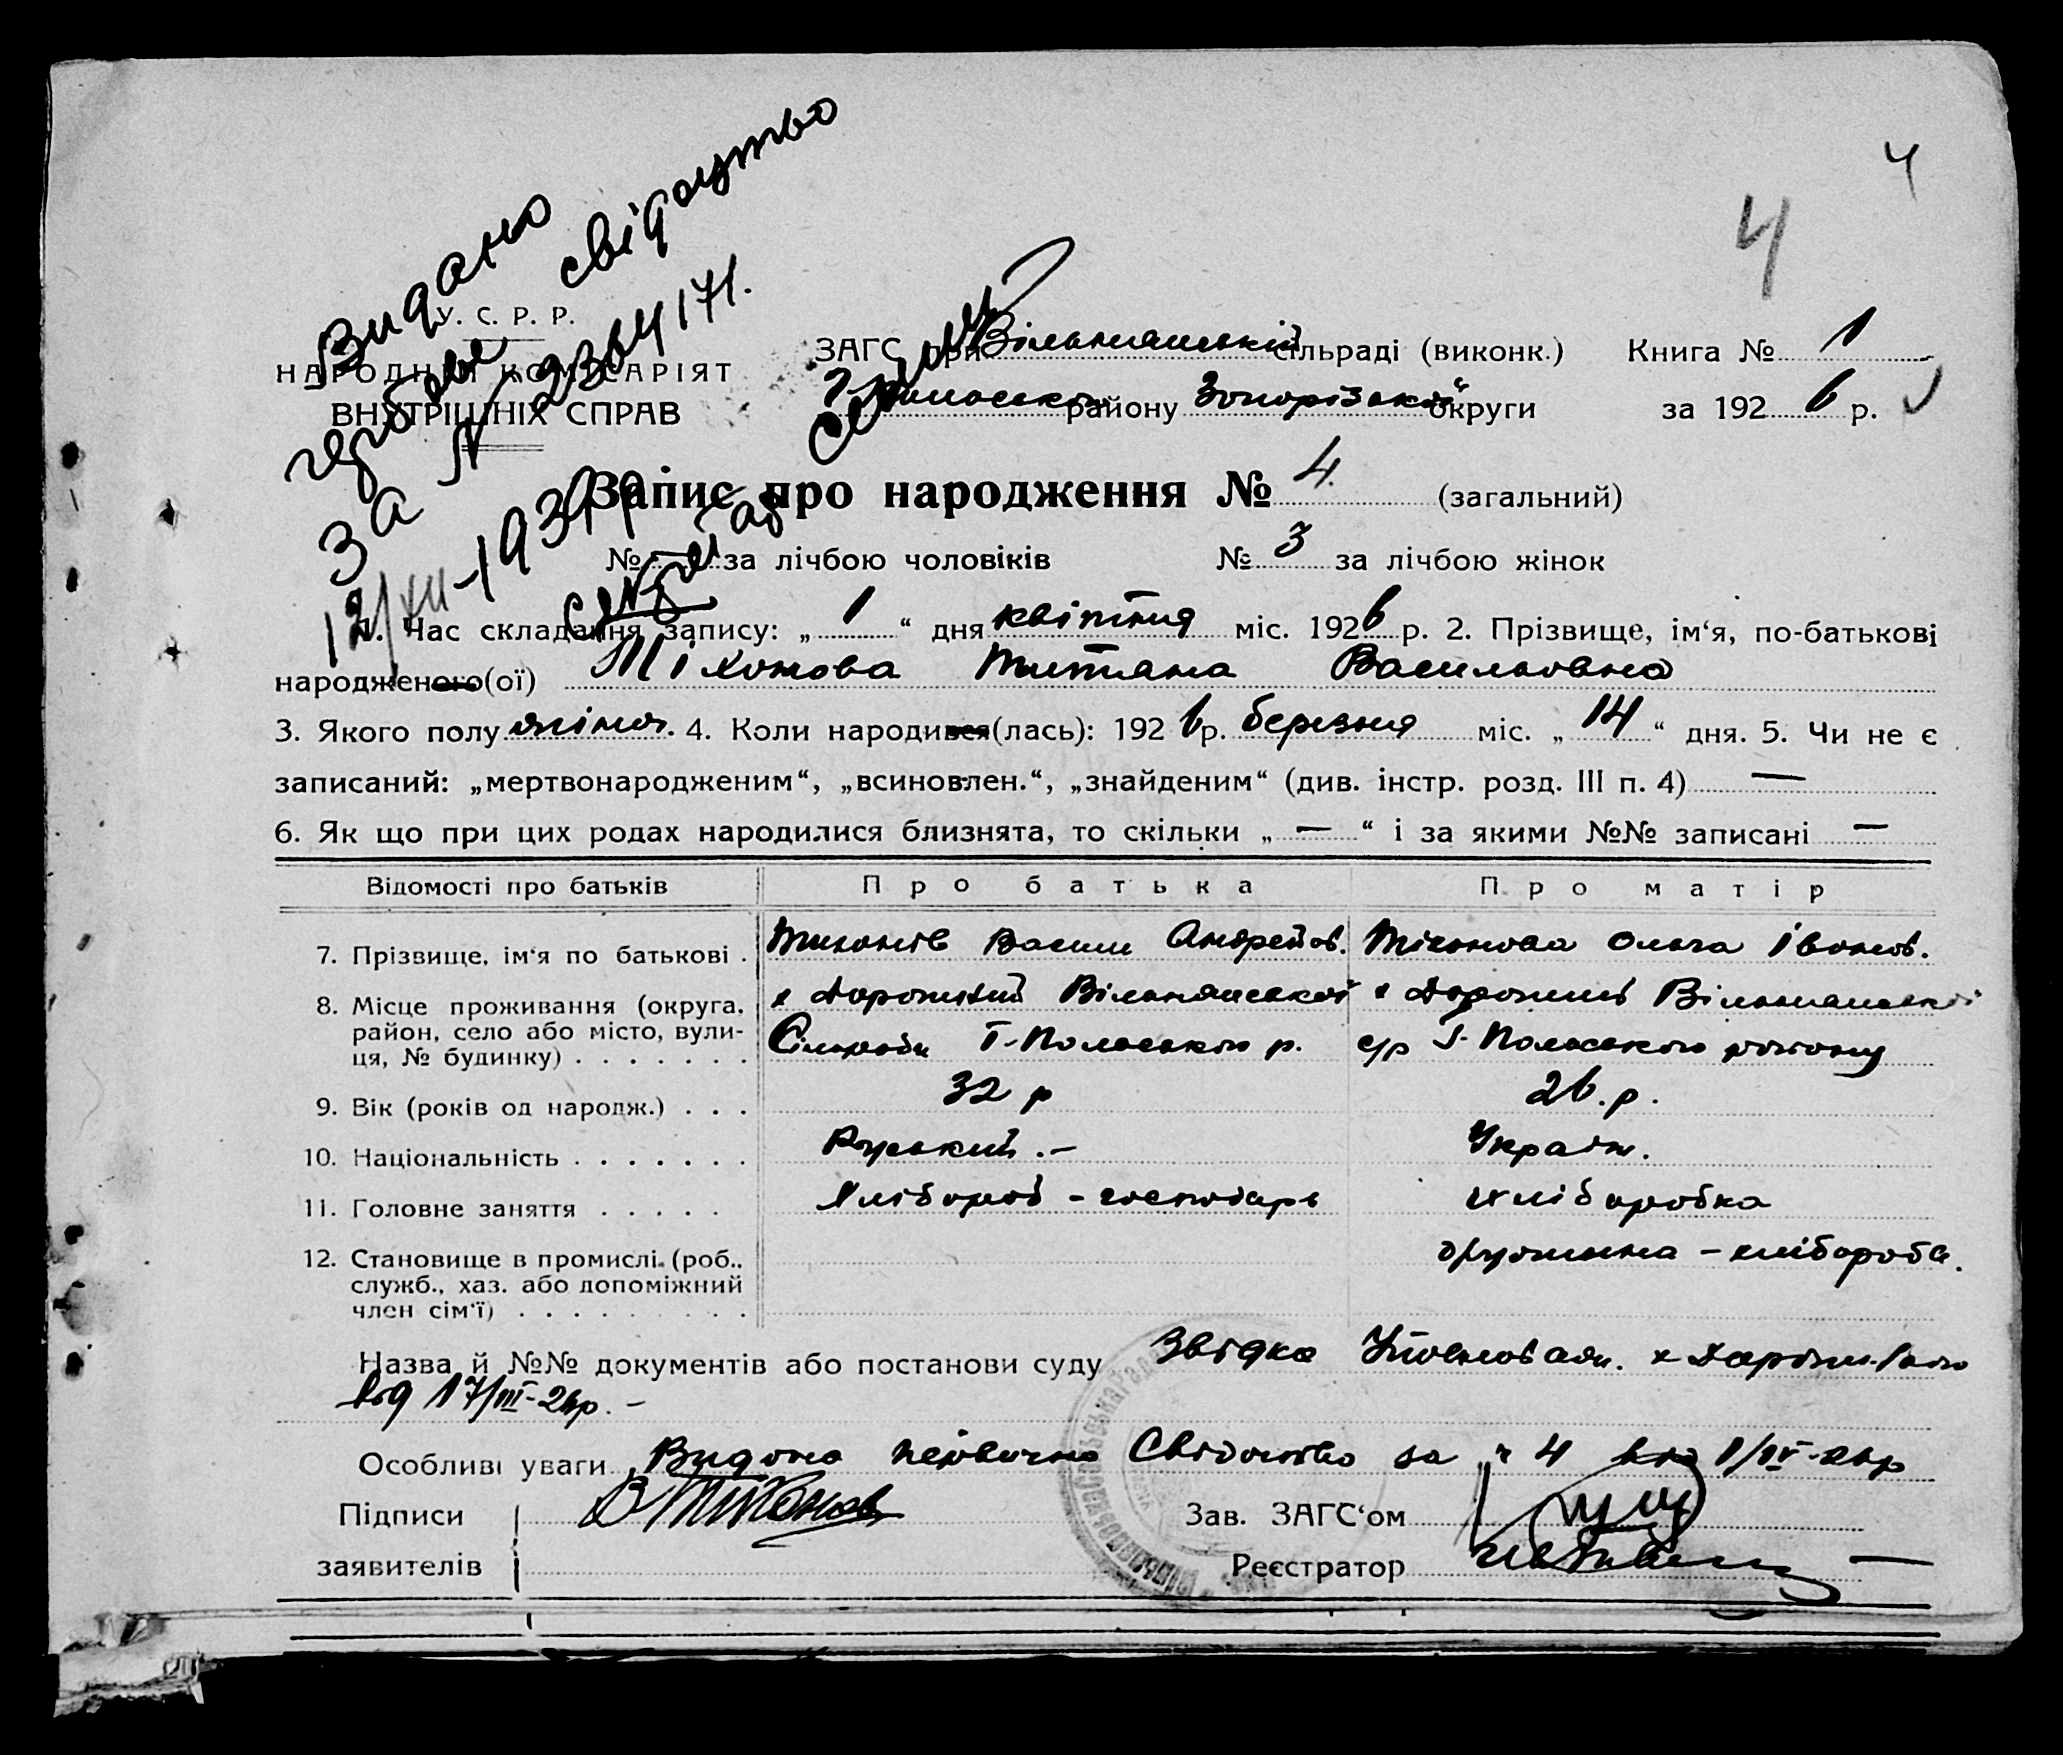 4
4
Видано
гербове свідоцтво
за № 2364171.
12/XII-1939 р
У. С. Р. Р.
НАРОДНІЙ КОМІСАРІЯТ
ВНУТРІШНІХ СПРАВ
ЗАГС при Вільнянській сільраді (виконк.) Книга № 1
Г-Польського району Запорізької округи за 1926 р.
Запис про народження № 4. (загальний)
№ — за лічбою чоловіків № 3 за лічбою жінок
1. Час складання запису: „ 1 “ дня квітня міс. 1926 р. 2. Прізвище, ім‘я, по-батькові
народженого(ої) Тіхонова Титяна Васильовна
3. Якого полу жіноч. 4. Коли народився(лась): 1926 р. березня міс. „ 14 “ дня. 5. Чи не є
записаний: „мертвонародженим“, „всиновлен.“, „знайденим“ (див. інстр. розд. III п. 4) —
6. Як що при цих родах народилися близнята, то скільки „ — “ і за якими №№ записані —
Відомості про батьків Про батька Про матір
7. Прізвище, ім‘я по батькові . Тихонів Васили Андреїов. Тіхонова Ольга Іванов.
8. Місце проживання (округа, х Вільнянської х Вільнянської
район, село або місто, вули- Сільради Г-Польського р. с/р Г-Польського району
ця, № будинку) . . . . . . .
9. Вік (років од народж.) . . . 32 р 26. р.
10. Національність . . . . . . . Руський.— Україн.
11. Головне заняття . . . . . Хлібороб - господарь хліборобка
12. Становище в промислі. (роб., дружина - хлібороба.
служб., хаз. або допоміжний
член сім‘ї) . . . . . . . . .
Назва й №№ документів або постанови суду Звідка Уповноваж. х
від 17/III-26р. —
Особливі уваги Видано первично Свідоцтво за № 4 від 1/IV-26р
Підписи В Тихонов Зав. ЗАГС‘ом
заявителів Реєстратор